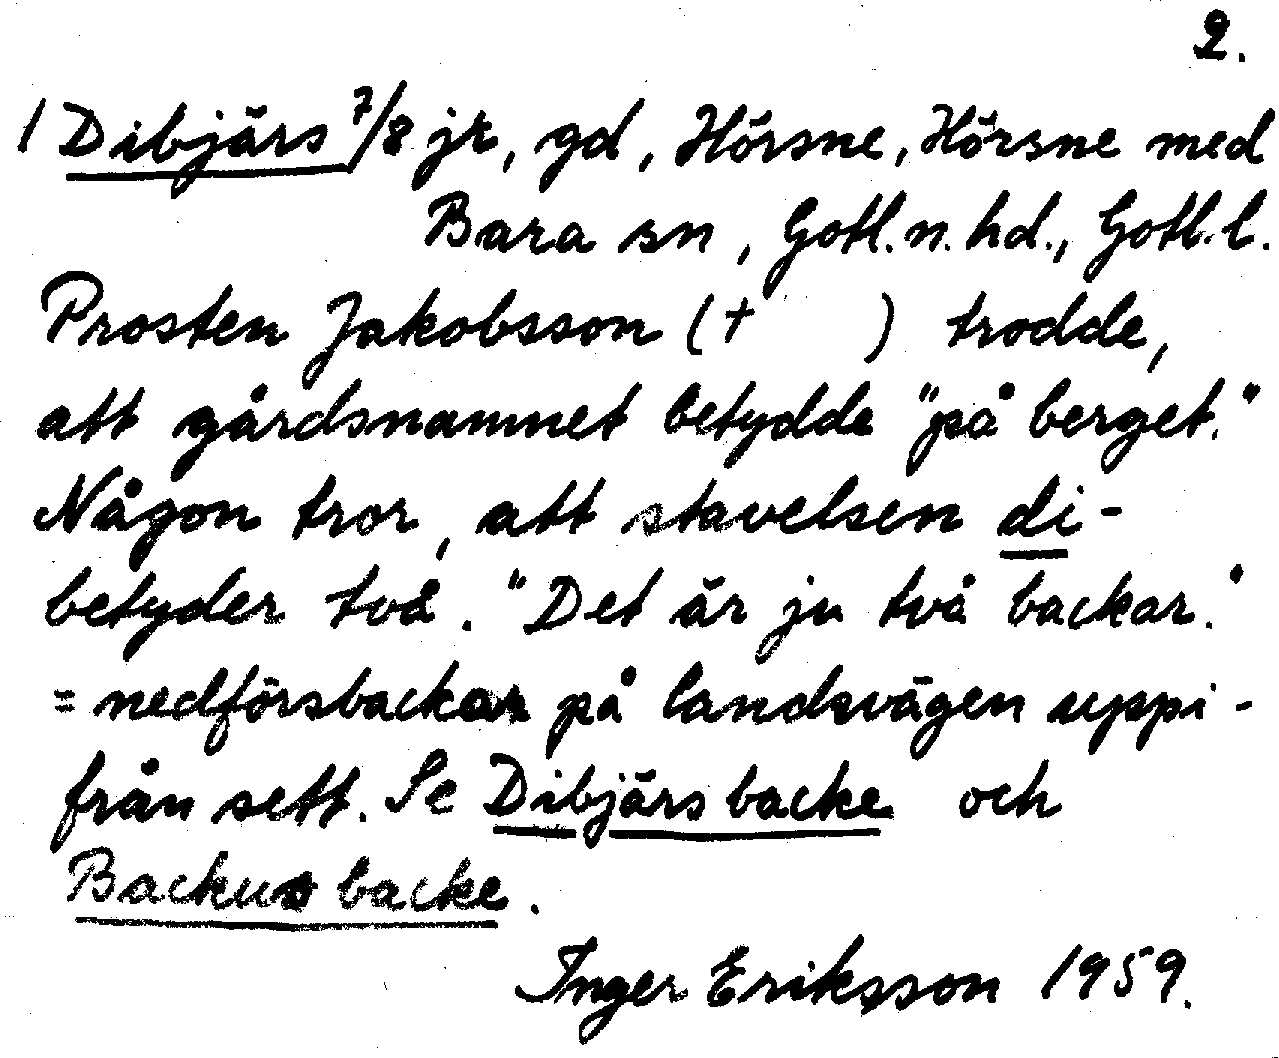 2.
1 Dibjärs 7/8 jk, gd, Hörsne, Hörsne med
Bara sn, Gotl. n. hd., Gotl. l.
Prosten Jakobsson († ) trodde,
att gårdsnamnet betydde "på berget."
Någon tror, att stavelsen di-
betyder två. "Det är ju två backar."
= nedförsbackar på landsvägen uppi-
från sett. Se Dibjärs backe och
Backus backe.
Inger Eriksson 1959.